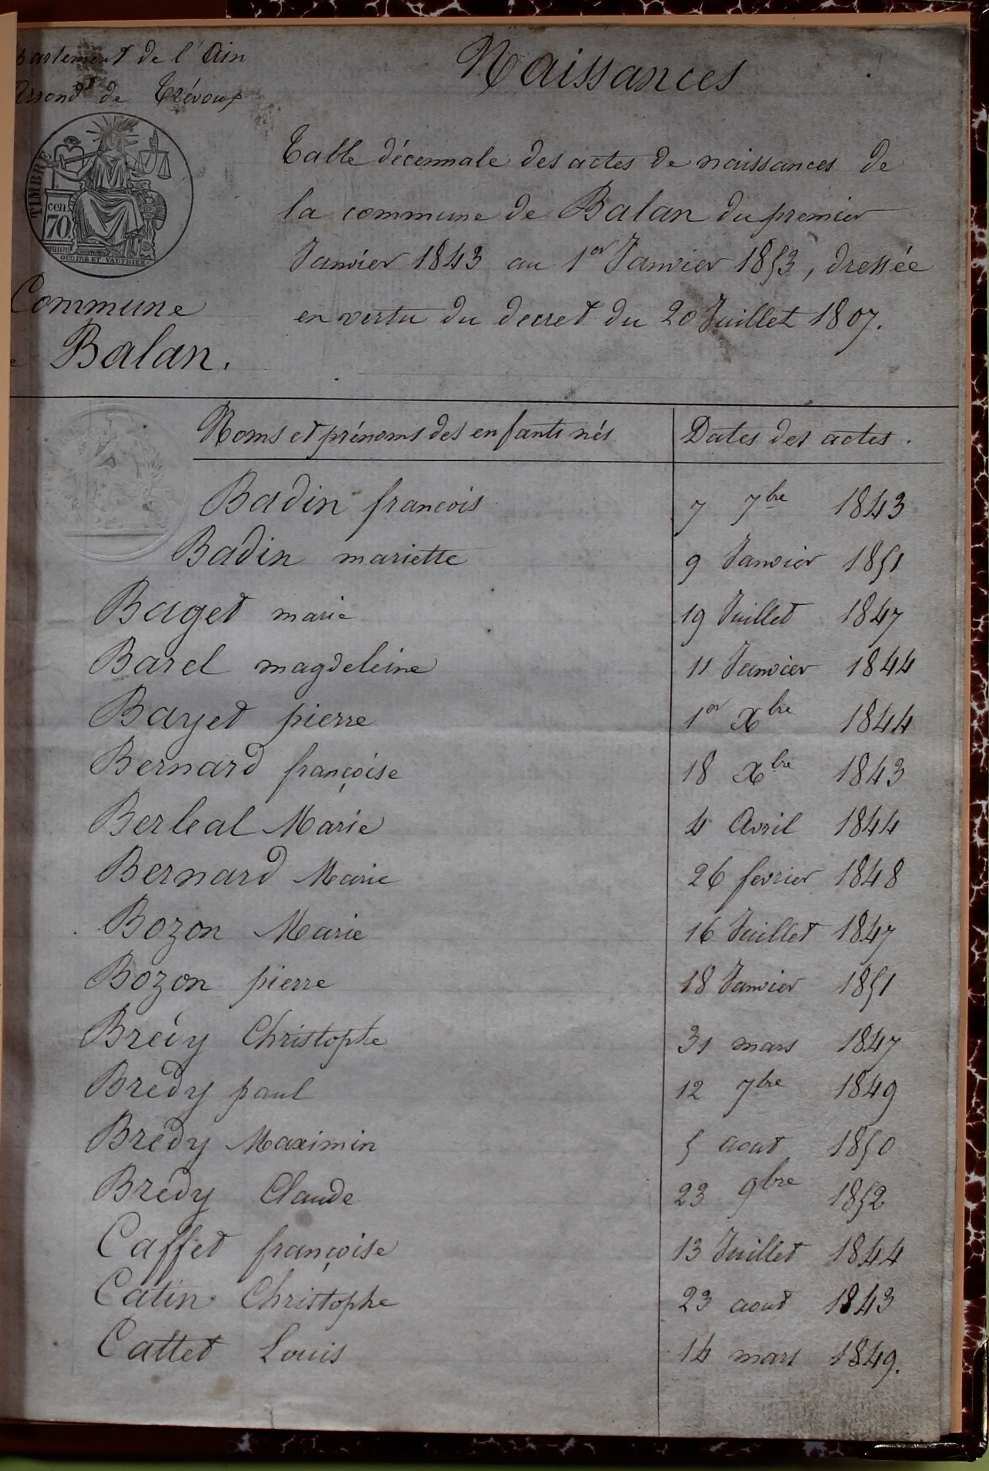 partement de l'Ain
Arrond.t de Trévoux
Naissances
TIMBRE
cen.
70
Table décennale des actes de naissances de
la commune de Balan du premier
Janvier 1843 au 1er Janvier 1853, dressée
en vertu du decret du 20 Juillet 1807.
Commune
e Balan.
Noms et prénoms des enfants nés Dates des actes.
Badin françois 7 7bre 1843
Badin mariette 9 Janvier 1851
Baget marie 19 Juillet 1847
Barel magdeleine 11 Janvier 1844
Bayet pierre 1er Xbre 1844
Bernard françoise 18 Xbre 1843
Berleal Marie 4 Avril 1844
Bernard Marie 26 fevrier 1848
Bozon Marie 16 Juillet 1847
Bozon pierre 18 Janvier 1851
Bredy Christophe 31 mars 1847
Bredy paul 12 7bre 1849
Bredy Maximin 5 aout 1850
Bredy Claude 23 9bre 1852
Caffet françoise 13 Juillet 1844
Catin Christophe 23 aout 1843
Cattet Louis 14 mars 1849.